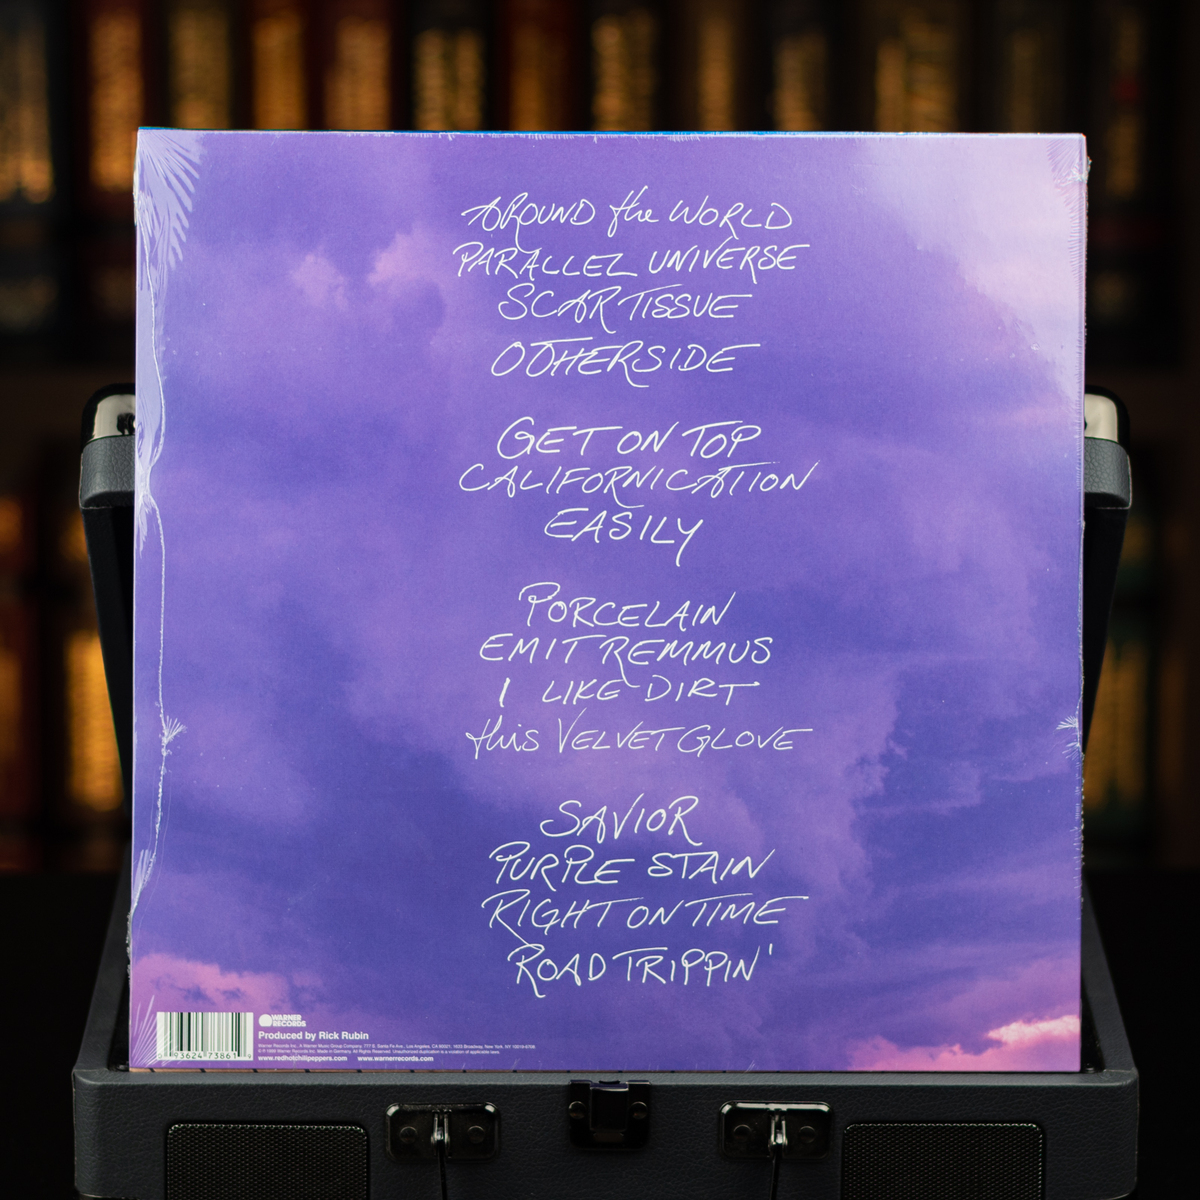 AROUND the WORLD
PARALLEL UNIVERSE
SCAR TISSUE
OTHERSIDE
GET ON TOP
CALIFORNICATION
EASILY
PORCELAIN
EMIT REMMUS
I LIKE DIRT
this VELVET GLOVE
SAVIOR
PURPLE STAIN
RIGHT ON TIME
ROAD TRIPPIN'
WARNER
RECORDS
Produced by Rick Rubin
Warner Records Inc., A Warner Music Group Company, 777 S. Santa Fe Ave., Los Angeles, CA 90021. 1633 Broadway, New York, NY 10019-6708.
℗ © 1999 Warner Records Inc. Made in Germany. All Rights Reserved. Unauthorized duplication is a violation of applicable laws.
www.redhotchilipeppers.com www.warnerrecords.com
93624 73861 9